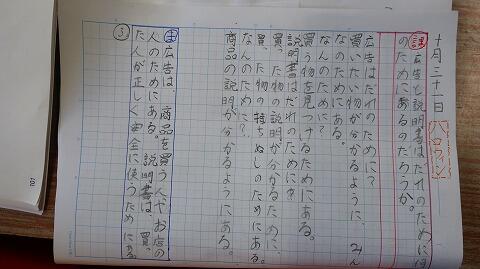 十月三十一日 ハロウィン
課 広告と説明書はだれのために
のためにあるのだろうか。
広告はだれのために?
買いたい物が分かるように、みん
なのためにある。
なんのために?
買う物を見つけるためにある。
説明書はだれのために?
買った物の説明が分かるために、
買った物の持ちぬしのためにある。
なんのために?
商品の説明が分かるようにある。
ま 広告は、商品を買う人やお店の
人のためにある。説明書は、買っ
た人が正しく安全に使うためにある
3
101